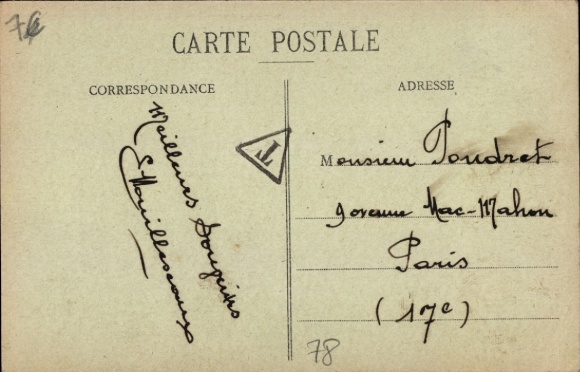 76
CARTE POSTALE
CORRESPONDANCE
ADRESSE
Meilleurs Souvenirs
T
Monsieur Poudret
9 avenue Mac-Mahon
Paris
(17e)
78